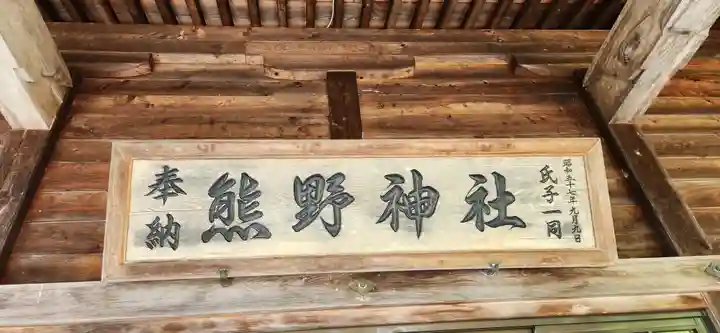 奉納
熊野神社
昭和五十七年九月九日
氏子一同